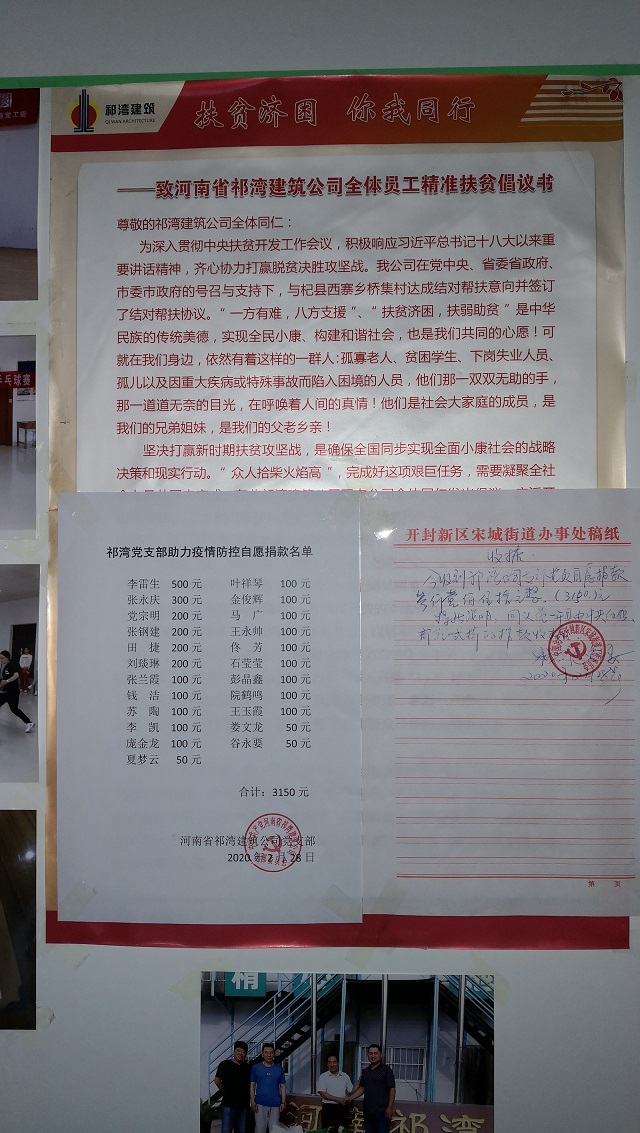 祁湾建筑
QI WAN ARCHITECTURE
扶贫济困 你我同行
——致河南省祁湾建筑公司全体员工精准扶贫倡议书
尊敬的祁湾建筑公司全体同仁：
为深入贯彻中央扶贫开发工作会议，积极响应习近平总书记十八大以来重
要讲话精神，齐心协力打赢脱贫决胜攻坚战。我公司在党中央、省委省政府、
市委市政府的号召与支持下，与杞县西寨乡桥集村达成结对帮扶意向并签订
了结对帮扶协议。“一方有难，八方支援”、“扶贫济困，扶弱助贫”是中华
民族的传统美德，实现全民小康、构建和谐社会，也是我们共同的心愿！可
就在我们身边，依然有着这样的一群人：孤寡老人、贫困学生、下岗失业人员、
孤儿以及因重大疾病或特殊事故而陷入困境的人员，他们那一双双无助的手，
那一道道无奈的目光，在呼唤着人间的真情！他们是社会大家庭的成员，是
我们的兄弟姐妹，是我们的父老乡亲！
坚决打赢新时期扶贫攻坚战，是确保全国同步实现全面小康社会的战略
决策和现实行动。“众人拾柴火焰高”，完成好这项艰巨任务，需要凝聚全社
祁湾党支部助力疫情防控自愿捐款名单
李雷生 500 元 叶祥琴 100 元
张永庆 300 元 金俊辉 100 元
党宗明 200 元 马 广 100 元
张钢建 200 元 王永帅 100 元
田 捷 200 元 佟 芳 100 元
刘琰琳 200 元 石莹莹 100 元
张兰霞 100 元 彭晶鑫 100 元
钱 洁 100 元 院鹤鸣 100 元
苏 陶 100 元 王玉霞 100 元
李 凯 100 元 娄文龙 50 元
庞金龙 100 元 谷永要 50 元
夏梦云 50 元
合计：3150 元
河南省祁湾建筑公司党支部
2020 年 2 月 28 日
开封新区宋城街道办事处稿纸
收据
第 页
乒乓球赛
精
河南祁湾